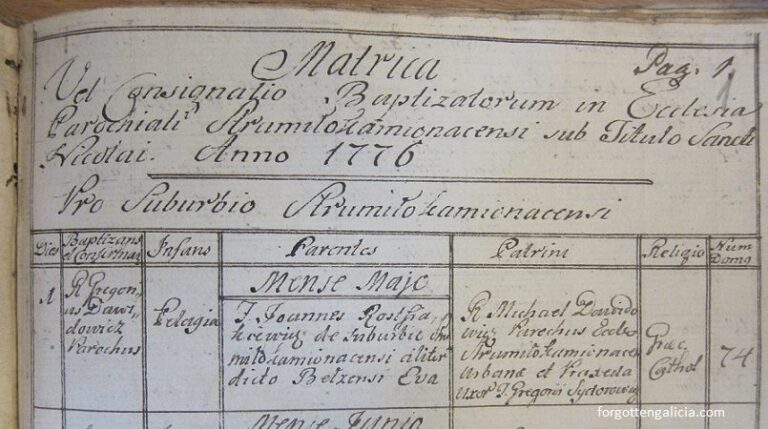 Matrica Pag. 1
Vel Consignatio Baptizatorum in Ecclesia
Parochiali Strumiłokamionacensi sub Titulo Sancti
Nicolai. Anno 1776
Pro Suburbio Strumiłokamionacensi
Dies Baptizans et Confirmans Infans Parentes Patrini Religio Num Domo
Mense Majo
1
R Gregori
us Dawi
dowicz
Parochus
Pelagia
J. Joannes
kiewicz de Suburbio Stru
miłokamionacensi aliter
dicto Bełzensi Eva
R Michael Dawido
wicz Parochus Eccles
Strumiłokamionacen
Urbanæ et Praxeda
Uxor J. Gregorii Sydorowicz
Græc
Cathol
74
Mense Junio
forgottengalicia.com